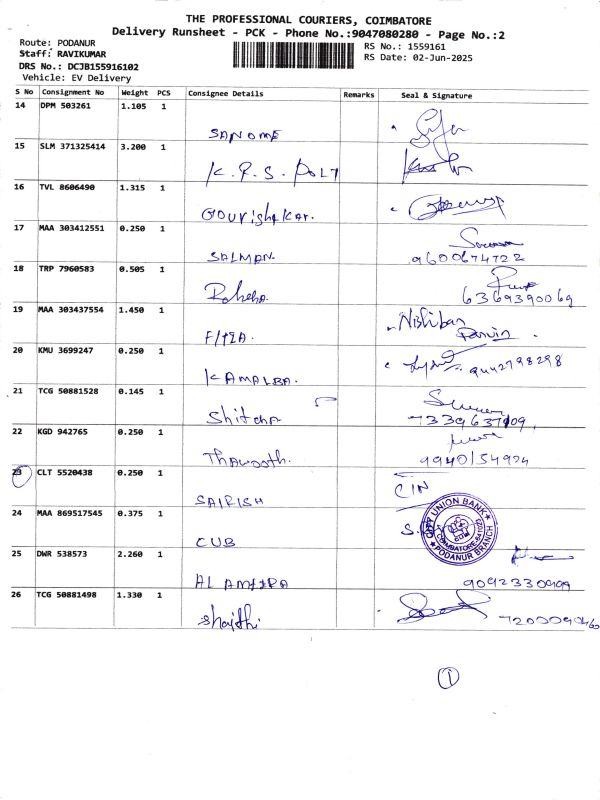 THE PROFESSIONAL COURIERS, COIMBATORE
Delivery Runsheet - PCK - Phone No.:9047080280 - Page No.:2
Route: PODANUR
Staff: RAVIKUMAR
DRS No.: DCJB155916102
Vehicle: EV Delivery
RS No.: 1559161
RS Date: 02-Jun-2025
S No Consignment No Weight PCS Consignee Details Remarks Seal & Signature
14 DPM 503261 1.105 1
SANOME
15 SLM 371325414 3.200 1
K.P.S. POLY
16 TVL 8606490 1.315 1
Gourishakar.
17 MAA 303412551 0.250 1
SALMAN. 9600674722
18 TRP 7960583 0.505 1
6369390069
19 MAA 303437554 1.450 1
Nishiban
Parvin.
20 KMU 3699247 0.250 1
KAMALBA. 9442798298
21 TCG 50881528 0.145 1
Shitcha 7339637109
22 KGD 942765 0.250 1
Thawooth. 9940154924
23 CLT 5520438 0.250 1
SAIRISH CIN
24 MAA 869517545 0.375 1
CUB
CITY UNION BANK
COIMBATORE
PODANUR BRANCH
25 DWR 538573 2.260 1
AL AMEERA 9092330999
26 TCG 50881498 1.330 1
Shajithi
1